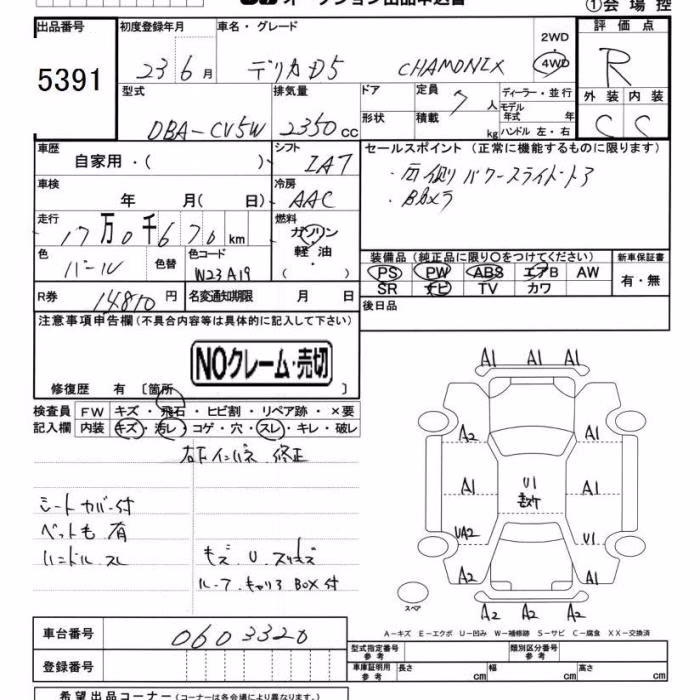 オークション出品申込書 ①会場控
出品番号 初度登録年月 車名・グレード 2WD 4WD 評価点
5391 23 6月 デリカD5 CHAMONIX R
型式 排気量 ドア 定員 7人 ディーラー・並行 外装 内装
モデル年式 年
DBA-CV5W 2350cc 形状 積載 kg ハンドル 左・右 C C
車歴 自家用・( ) シフト IA7 セールスポイント(正常に機能するものに限ります)
車検 年 月( 日) 冷房 AAC ・両側パワースライドドア
・Bカメラ
走行 17万0千670km 燃料 ガソリン 軽油
色 パール 色替 色コード W23A19 装備品(純正品に限り○をつけてください) 新車保証書
PS PW ABS エアB AW 有・無
SR ナビ TV カワ
R券 14810円 名変通知期限 月 日 後日品
注意事項申告欄(不具合内容等は具体的に記入して下さい)
NOクレーム・売切
修復歴 有〔箇所 〕
検査員 FW キズ・飛石・ヒビ割・リペア跡・×要
記入欄 内装 キズ・汚レ・コゲ・穴・スレ・キレ・破レ
右下インパネ 修正
シートカバー付
ペット毛 有
ハンドル スレ
キズ.U.スリキズ
ルーフ キャリア BOX付
A1 A1 A1
A2 A1
A1 U1 A1
UA2 U1
A2 A2
スペア
A2 A2 A2
A-キズ E-エクボ U-凹み W-補修跡 S-サビ C-腐食 XX-交換済
車台番号 0603320
登録番号
型式指定番号 参考 類別区分番号 参考
車庫証明用 参考 長さ cm 幅 cm 高さ cm
希望出品コーナー(コーナーは各会場により異なります。)